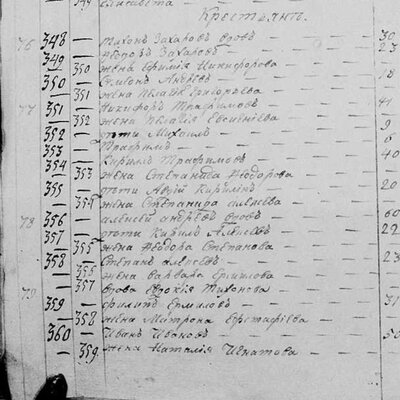 349 Елисавета —
Крестьяне.
76 348 — Тихонъ Захаровъ вдовъ — 30
349 — Ѳедоръ Захаровъ — 23
350 жена Евѳимія Никифорова
350 — Симеонъ Андреевъ — 18
351 жена Пелагія Григорьева
77 351 — Никифоръ Трофимовъ — 41
352 жена Пелагія Евсениева
352 — дѣти Михаилъ — 9
353 — Трофимъ — 6
354 — Кирилъ Трофимовъ — 40
353 жена Степанида Ѳеодорова
355 — дѣти Авдій Кириловъ — 20
354 жена Степанида Алексеева
78 356 — Алексей Андреевъ вдовъ — 60
357 — дѣти Кирилъ Алексеевъ — 22
355 жена Ѳедора Степанова
358 — Степанъ Алексеевъ — 23
356 жена Варвара Ермилова
79 — 357 вдова Евдокія Тихонова
359 — Филипъ Ермиловъ — 31
358 жена Матрона Евстафіева
360 — Иванъ Ивановъ — 50
359 жена Наталія Игнатова